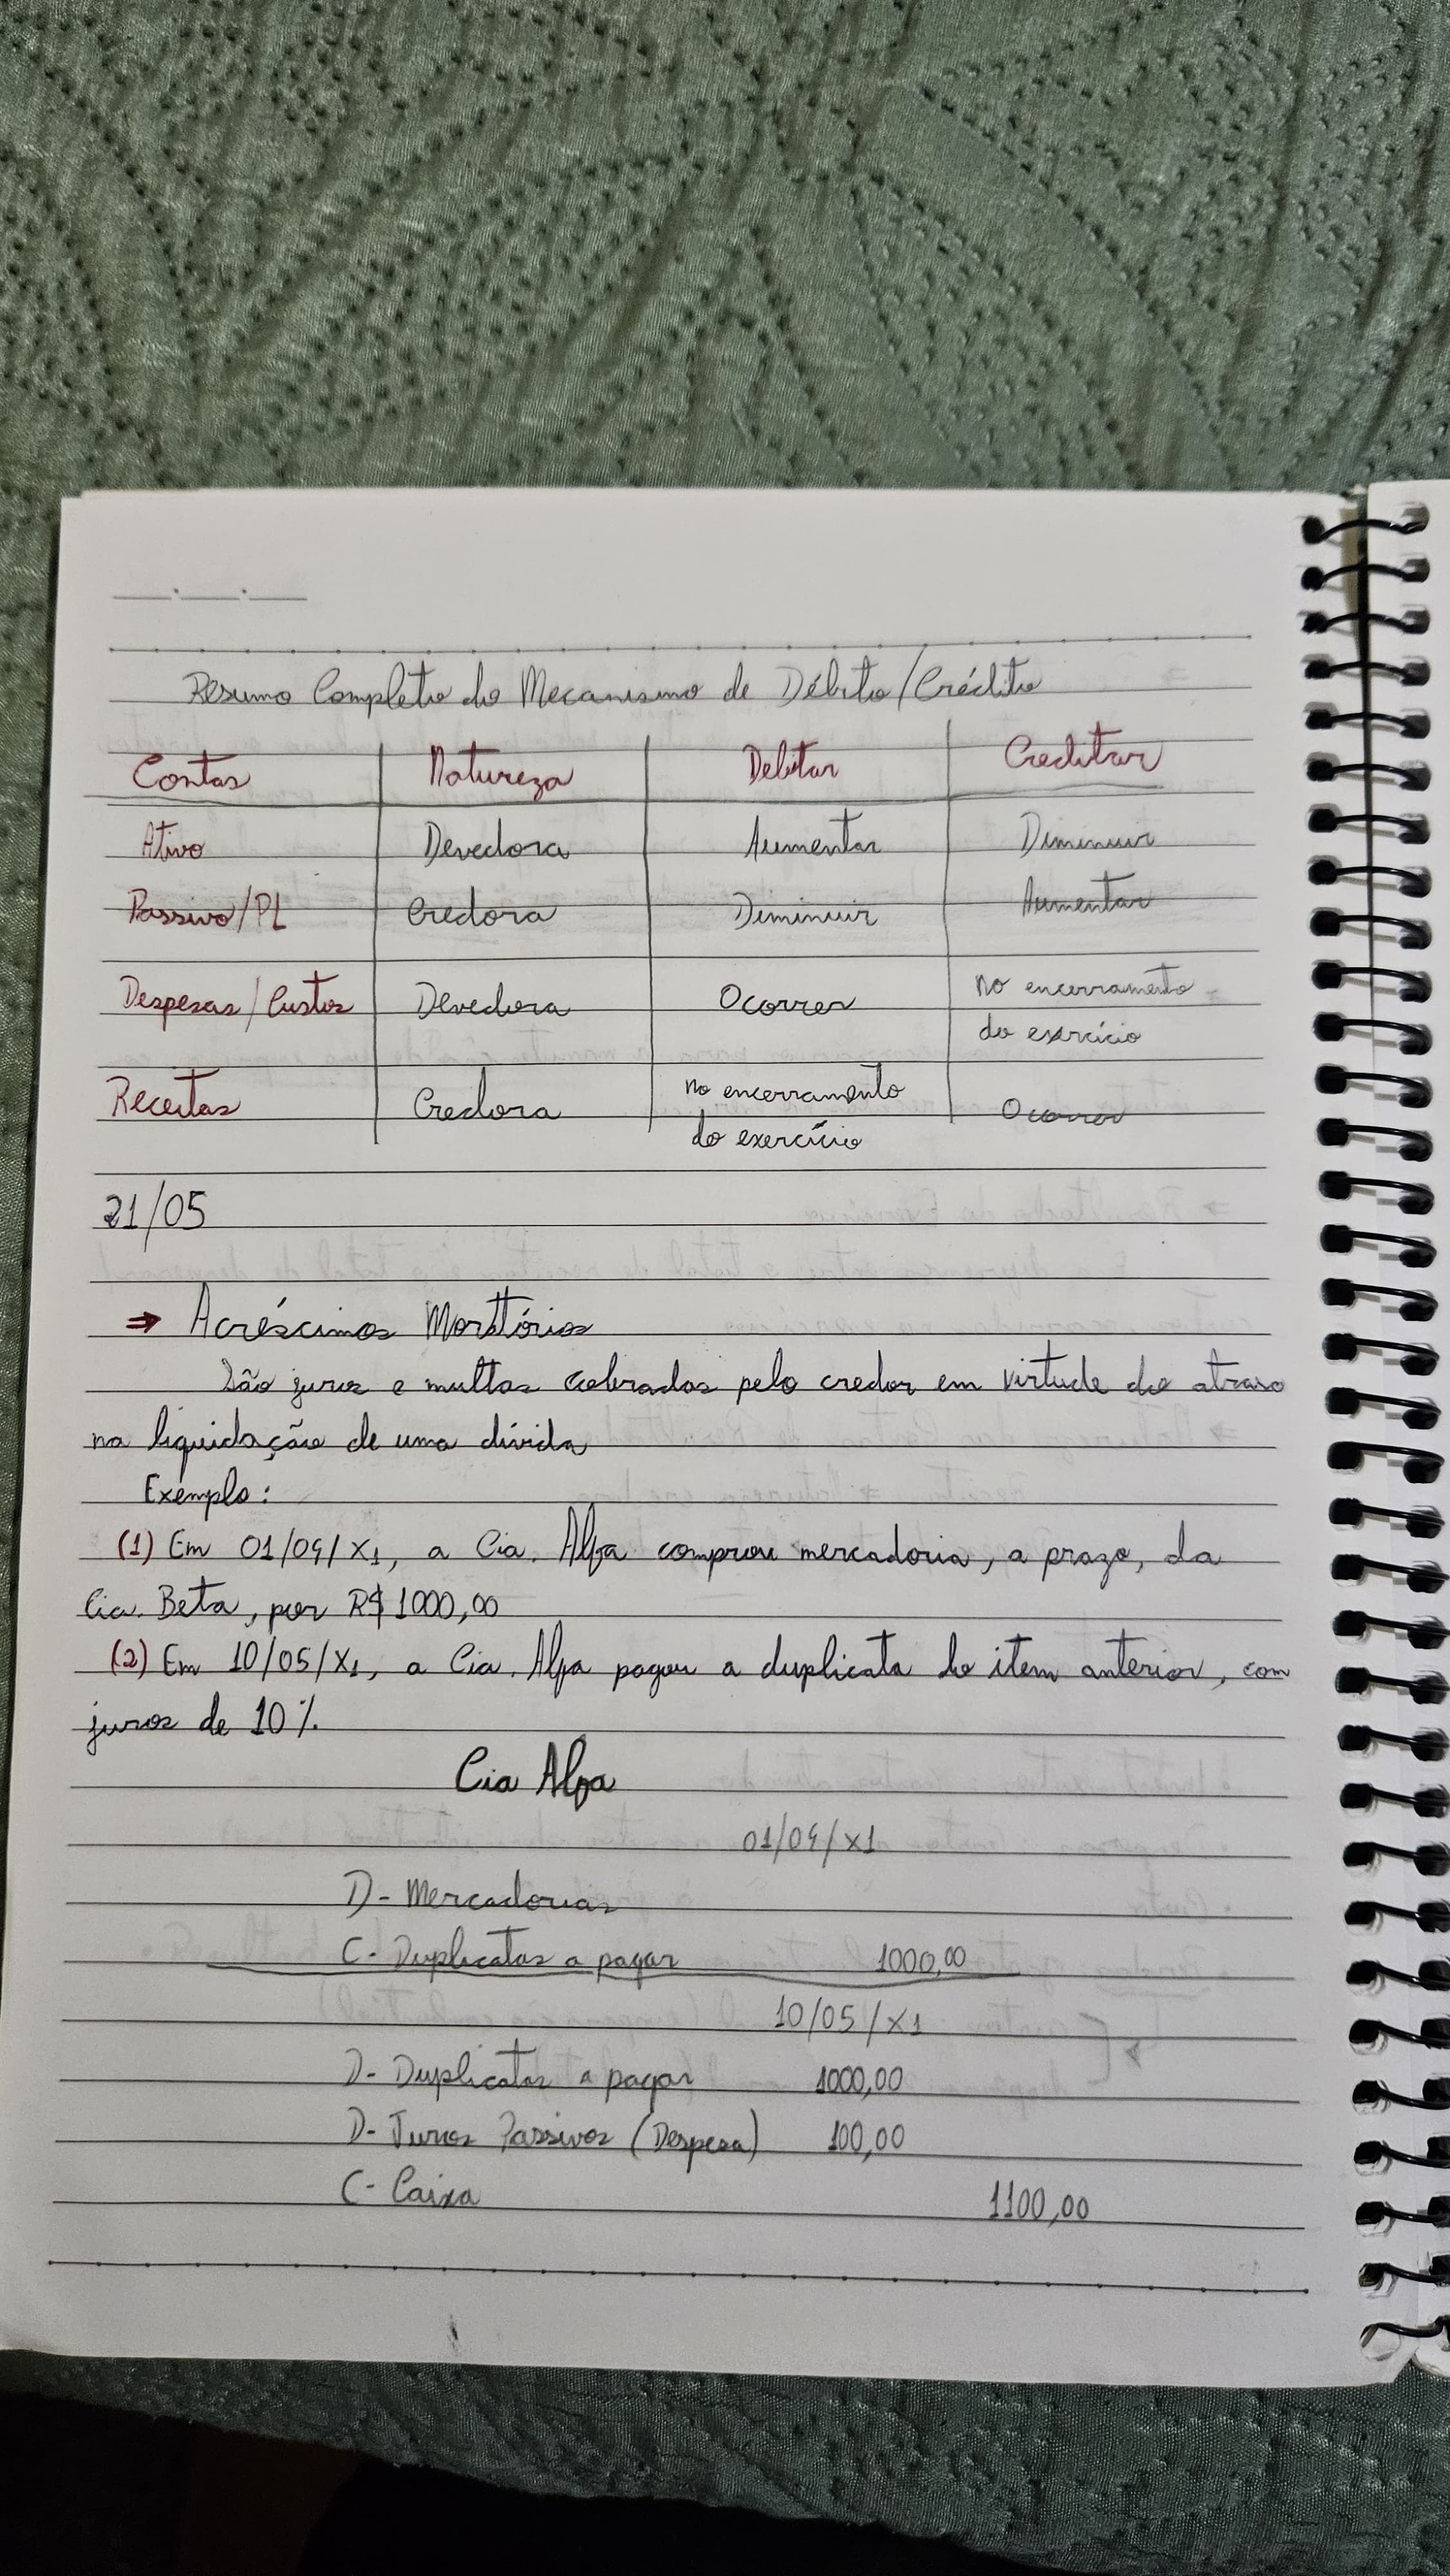 Resumo Completo do Mecanismo de Débito/Crédito
Contas Natureza Debitar Creditar
Ativo Devedora Aumentar Diminuir
Passivo/PL Credora Diminuir Aumentar
Despesas/Custos Devedora Ocorrer no encerramento
do exercício
Receitas Credora no encerramento Ocorrer
do exercício
21/05
⇒ Acréscimos Moratórios
São juros e multas cobrados pelo credor em virtude do atraso
na liquidação de uma dívida
Exemplo:
(1) Em 01/04/X1, a Cia. Alfa comprou mercadoria, a prazo, da
Cia. Beta, por R$ 1000,00
(2) Em 10/05/X1, a Cia. Alfa pagou a duplicata do item anterior, com
juros de 10%.
Cia Alfa
01/04/X1
D- Mercadorias
C- Duplicatas a pagar 1000,00
10/05/X1
D- Duplicatas a pagar 1000,00
D- Juros Passivos (Despesa) 100,00
C- Caixa 1100,00